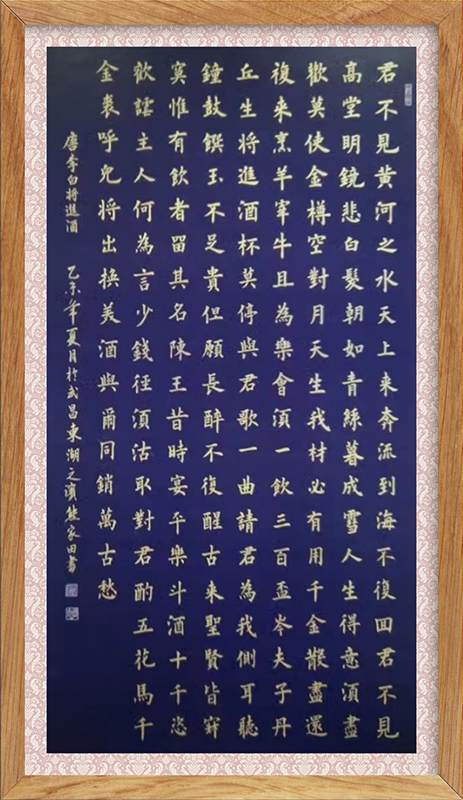 君不見黄河之水天上来奔流到海不復回君不見
高堂明鏡悲白髮朝如青絲暮成雪人生得意須盡
歡莫使金樽空對月天生我材必有用千金散盡還
復来烹羊宰牛且為樂會須一飲三百盃岑夫子丹
丘生将進酒杯莫停與君歌一曲請君為我側耳聽
鐘鼓饌玉不足貴但願長醉不復醒古来聖賢皆寂
寞惟有飲者留其名陳王昔時宴平樂斗酒十千恣
歡謔主人何為言少錢徑須沽取對君酌五花馬千
金裘呼兒将出換美酒與爾同銷萬古愁
唐李白将進酒 乙未年夏月於武昌東湖之濱熊家田書